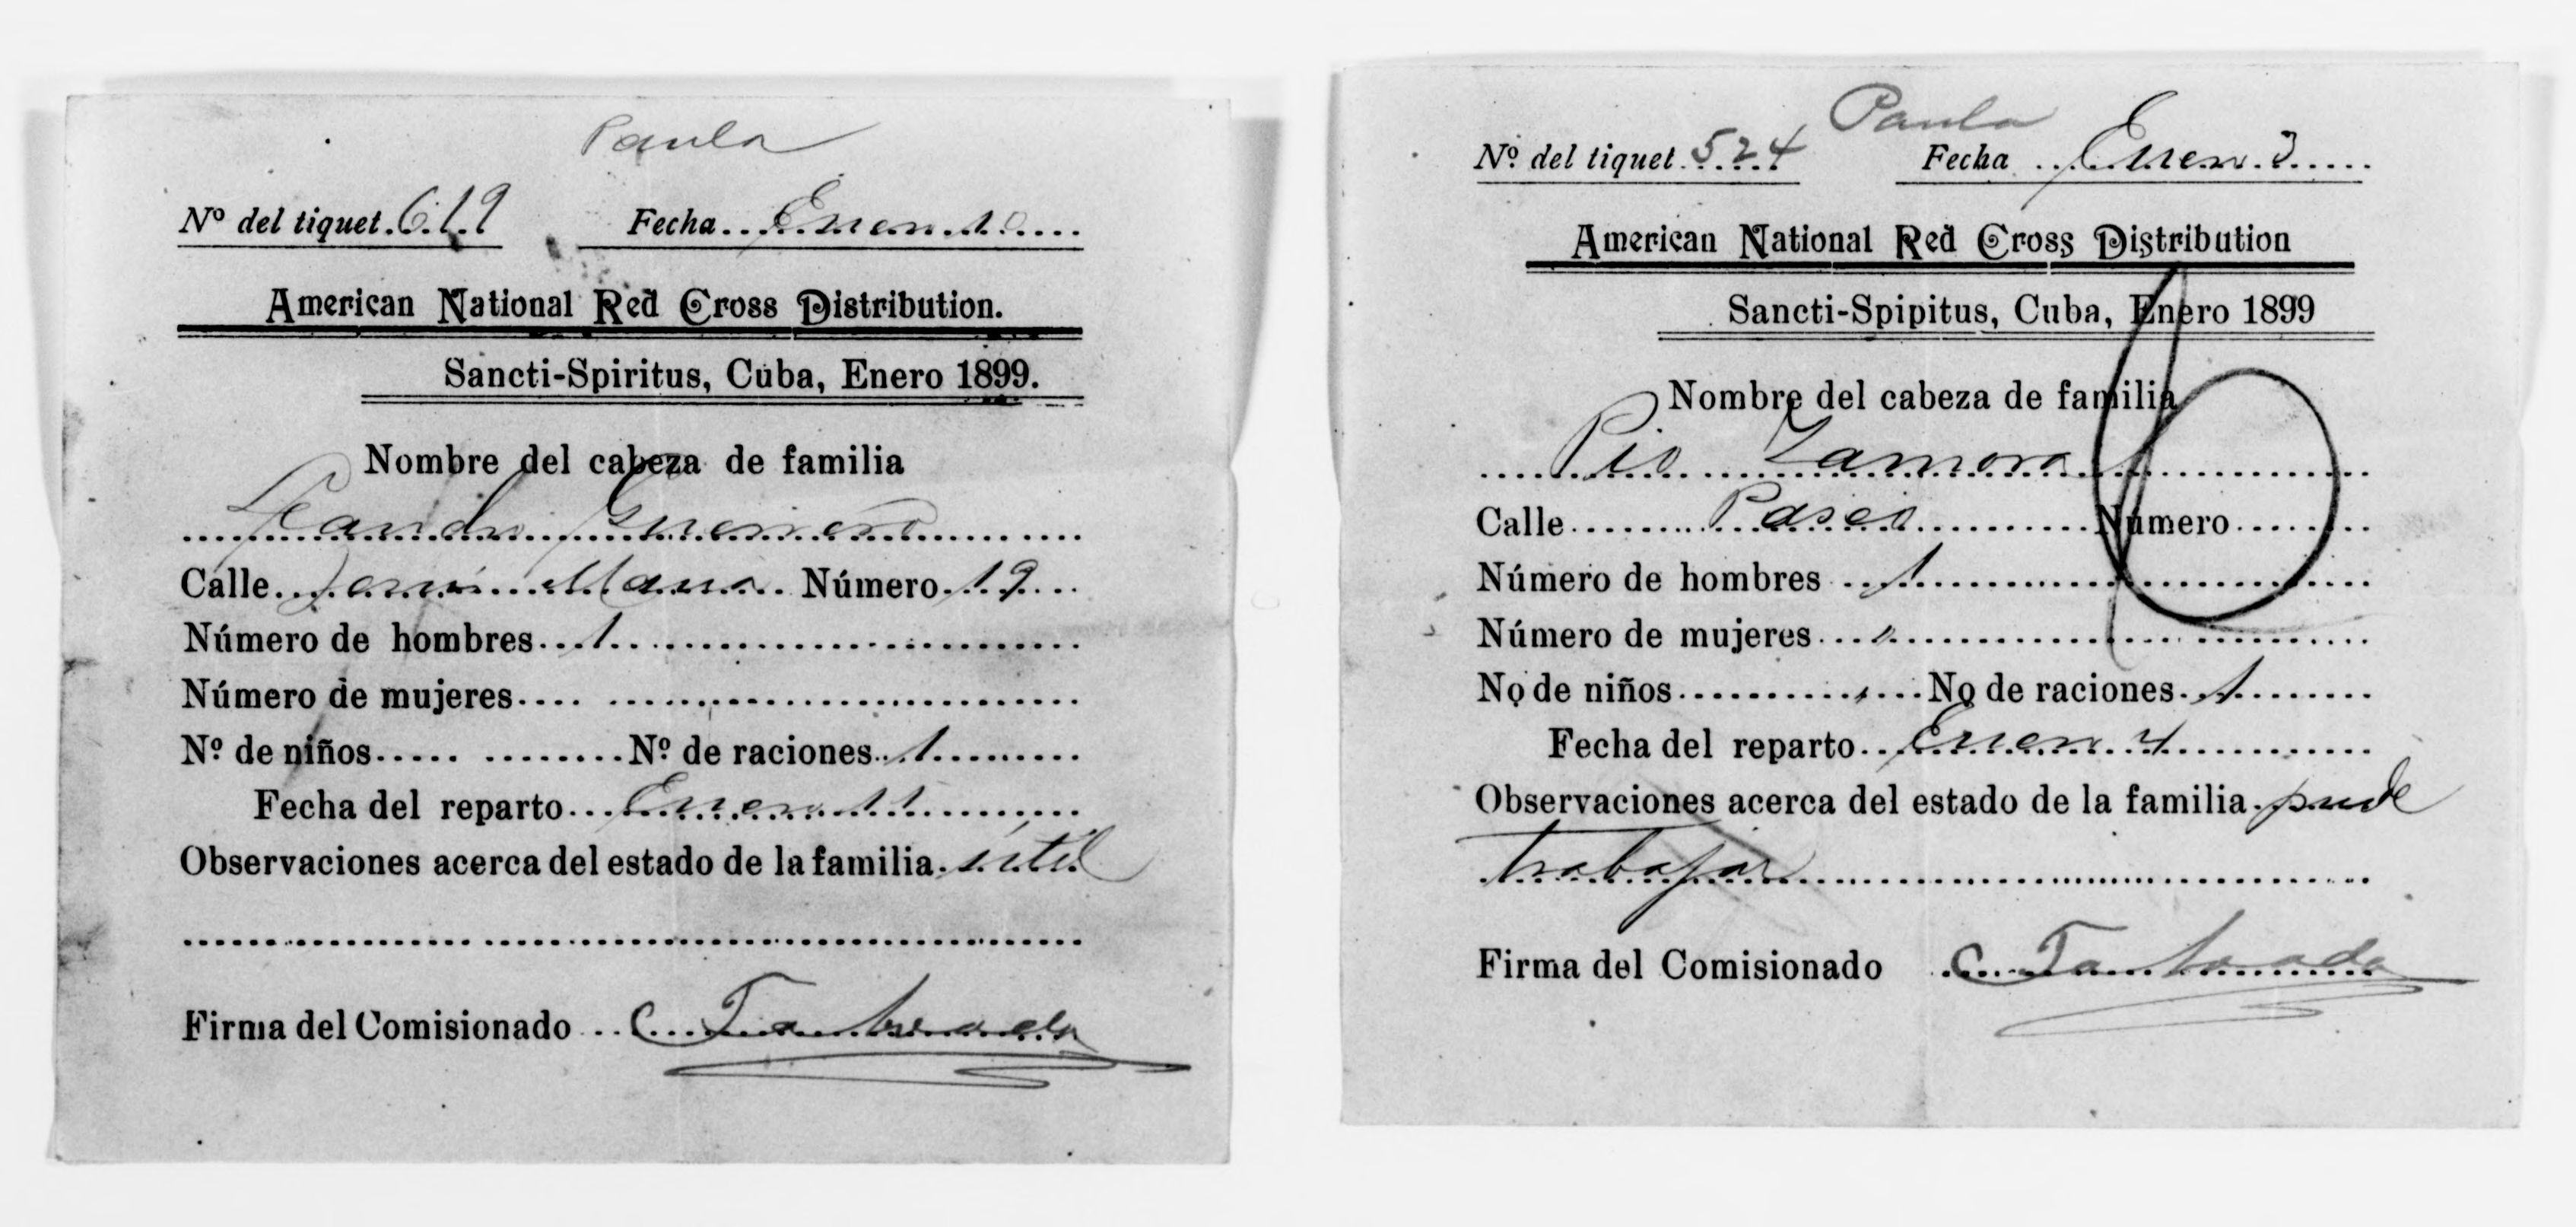 Paula
Nº del tiquet. 619 Fecha Enero 10
American National Red Cross Distribution.
Sancti-Spiritus, Cuba, Enero 1899.
Nombre del cabeza de familia
Leandro Guerrero
Calle Jesús María Número 19
Número de hombres 1
Número de mujeres
Nº de niños Nº de raciones 1
Fecha del reparto Enero 11
Observaciones acerca del estado de la familia útil
Firma del Comisionado C.
Paula
Nº del tiquet 524 Fecha Enero 3
American National Red Cross Distribution
Sancti-Spipitus, Cuba, Enero 1899
Nombre del cabeza de familia
Pio Zamora
Calle Paseo Número
Número de hombres 1
Número de mujeres
No de niños No de raciones 1
Fecha del reparto Enero 4
Observaciones acerca del estado de la familia puede
trabajar
Firma del Comisionado C.